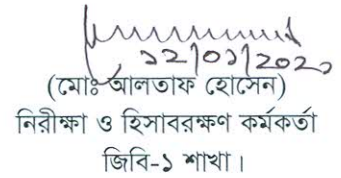 ১২/০১/২০২১
(মোঃ আলতাফ হোসেন)
নিরীক্ষা ও হিসাবরক্ষণ কর্মকর্তা
জিবি-১ শাখা।